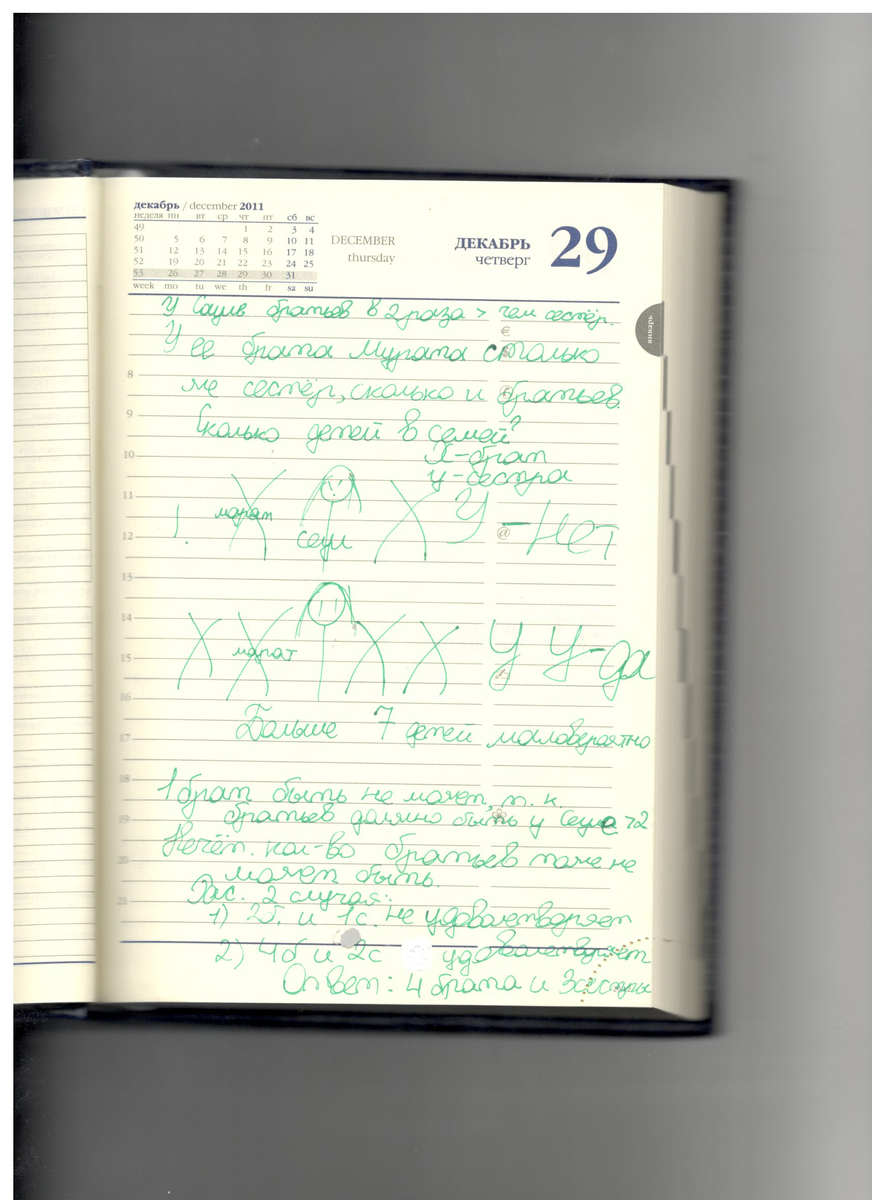 декабрь / december 2011
неделя пн вт ср чт пт сб вс
49 1 2 3 4
50 5 6 7 8 9 10 11
51 12 13 14 15 16 17 18
52 19 20 21 22 23 24 25
53 26 27 28 29 30 31
week mo tu we th fr sa su
DECEMBER
thursday
ДЕКАБРЬ
четверг
29
январь
У братьев в 2 раза > чем сестёр.
€
У её брата Мурата столько
8
же сестёр, сколько и братьев.
9
Сколько детей в семей?
10
X-брат
у-сестра
11
марат
У-Нет
12
сеуи
@
13
14
марат
У У-да
15
16
Больше 7 детей маловероятно
17
18
1 брат быть не может, т. к.
19
братьев должно быть у
Нечёт. кол-во братьев тоже не
20
может быть.
Рас. 2 случая:
21
1) 2б. и 1с. не удовлетворяет
2) 4б и 2с удовлетворяет
Ответ: 4 брата и 3сестры